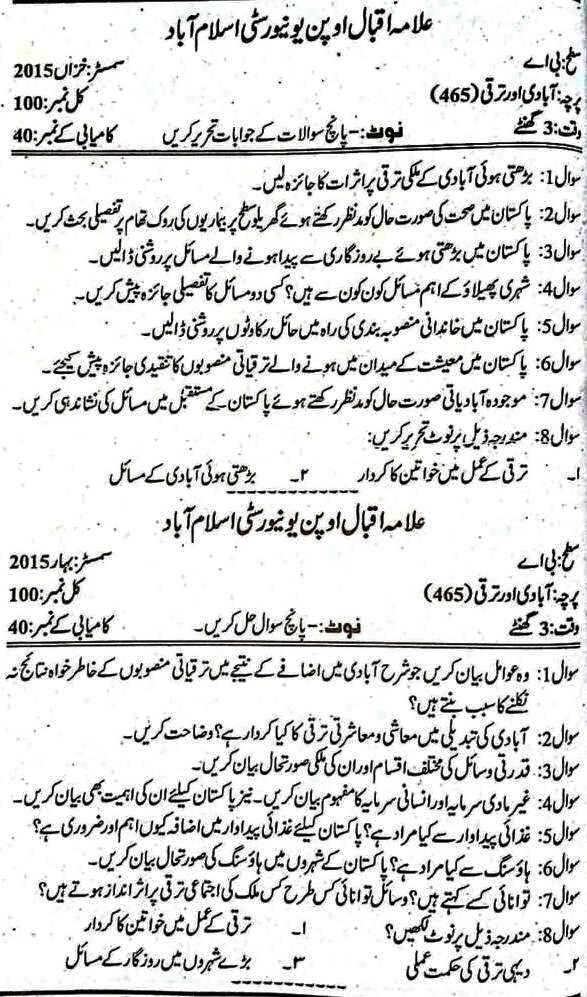 علامہ اقبال اوپن یونیورسٹی اسلام آباد
سطح: بی اے
سمسٹر: خزاں 2015
پرچہ: آبادی اور ترقی (465)
کل نمبر: 100
وقت: 3 گھنٹے
نوٹ:- پانچ سوالات کے جوابات تحریر کریں
کامیابی کے نمبر: 40
سوال 1: بڑھتی ہوئی آبادی کے ملکی ترقی پر اثرات کا جائزہ لیں۔
سوال 2: پاکستان میں صحت کی صورت حال کو مدنظر رکھتے ہوئے گھریلو سطح پر بیماریوں کی روک تھام پر تفصیلی بحث کریں۔
سوال 3: پاکستان میں بڑھتی ہوئے بے روزگاری سے پیدا ہونے والے مسائل پر روشنی ڈالیں۔
سوال 4: شہری پھیلاؤ کے اہم مسائل کون کون سے ہیں؟ کسی دو مسائل کا تفصیلی جائزہ پیش کریں۔
سوال 5: پاکستان میں خاندانی منصوبہ بندی کی راہ میں حائل رکاوٹوں پر روشنی ڈالیں۔
سوال 6: پاکستان میں معیشت کے میدان میں ہونے والے ترقیاتی منصوبوں کا تنقیدی جائزہ پیش کیجئے۔
سوال 7: موجودہ آبادیاتی صورت حال کو مدنظر رکھتے ہوئے پاکستان کے مستقبل میں مسائل کی نشاندہی کریں۔
سوال 8: مندرجہ ذیل پر نوٹ تحریر کریں:
۱۔ ترقی کے عمل میں خواتین کا کردار ۲۔ بڑھتی ہوئی آبادی کے مسائل
علامہ اقبال اوپن یونیورسٹی اسلام آباد
سطح: بی اے
سمسٹر: بہار 2015
پرچہ: آبادی اور ترقی (465)
کل نمبر: 100
وقت: 3 گھنٹے
نوٹ:- پانچ سوال حل کریں۔
کامیابی کے نمبر: 40
سوال 1: وہ عوامل بیان کریں جو شرح آبادی میں اضافے کے نتیجے میں ترقیاتی منصوبوں کے خاطر خواہ نتائج نہ
نکلنے کا سبب بنتے ہیں؟
سوال 2: آبادی کی تبدیلی میں معاشی و معاشرتی ترقی کا کیا کردار ہے؟ وضاحت کریں۔
سوال 3: قدرتی وسائل کی مختلف اقسام اور ان کی ملکی صورتحال بیان کریں۔
سوال 4: غیر مادی سرمایہ اور انسانی سرمایہ کا مفہوم بیان کریں۔ نیز پاکستان کیلئے ان کی اہمیت بھی بیان کریں۔
سوال 5: غذائی پیداوار سے کیا مراد ہے؟ پاکستان کیلئے غذائی پیداوار میں اضافہ کیوں اہم اور ضروری ہے؟
سوال 6: ہاؤسنگ سے کیا مراد ہے؟ پاکستان کے شہروں میں ہاؤسنگ کی صورتحال بیان کریں۔
سوال 7: توانائی کسے کہتے ہیں؟ وسائل توانائی کس طرح کس ملک کی اجتماعی ترقی پر اثر انداز ہوتے ہیں؟
سوال 8: مندرجہ ذیل پر نوٹ لکھیں؟ ۱۔ ترقی کے عمل میں خواتین کا کردار
۲۔ دیہی ترقی کی حکمت عملی ۳۔ بڑے شہروں میں روزگار کے مسائل